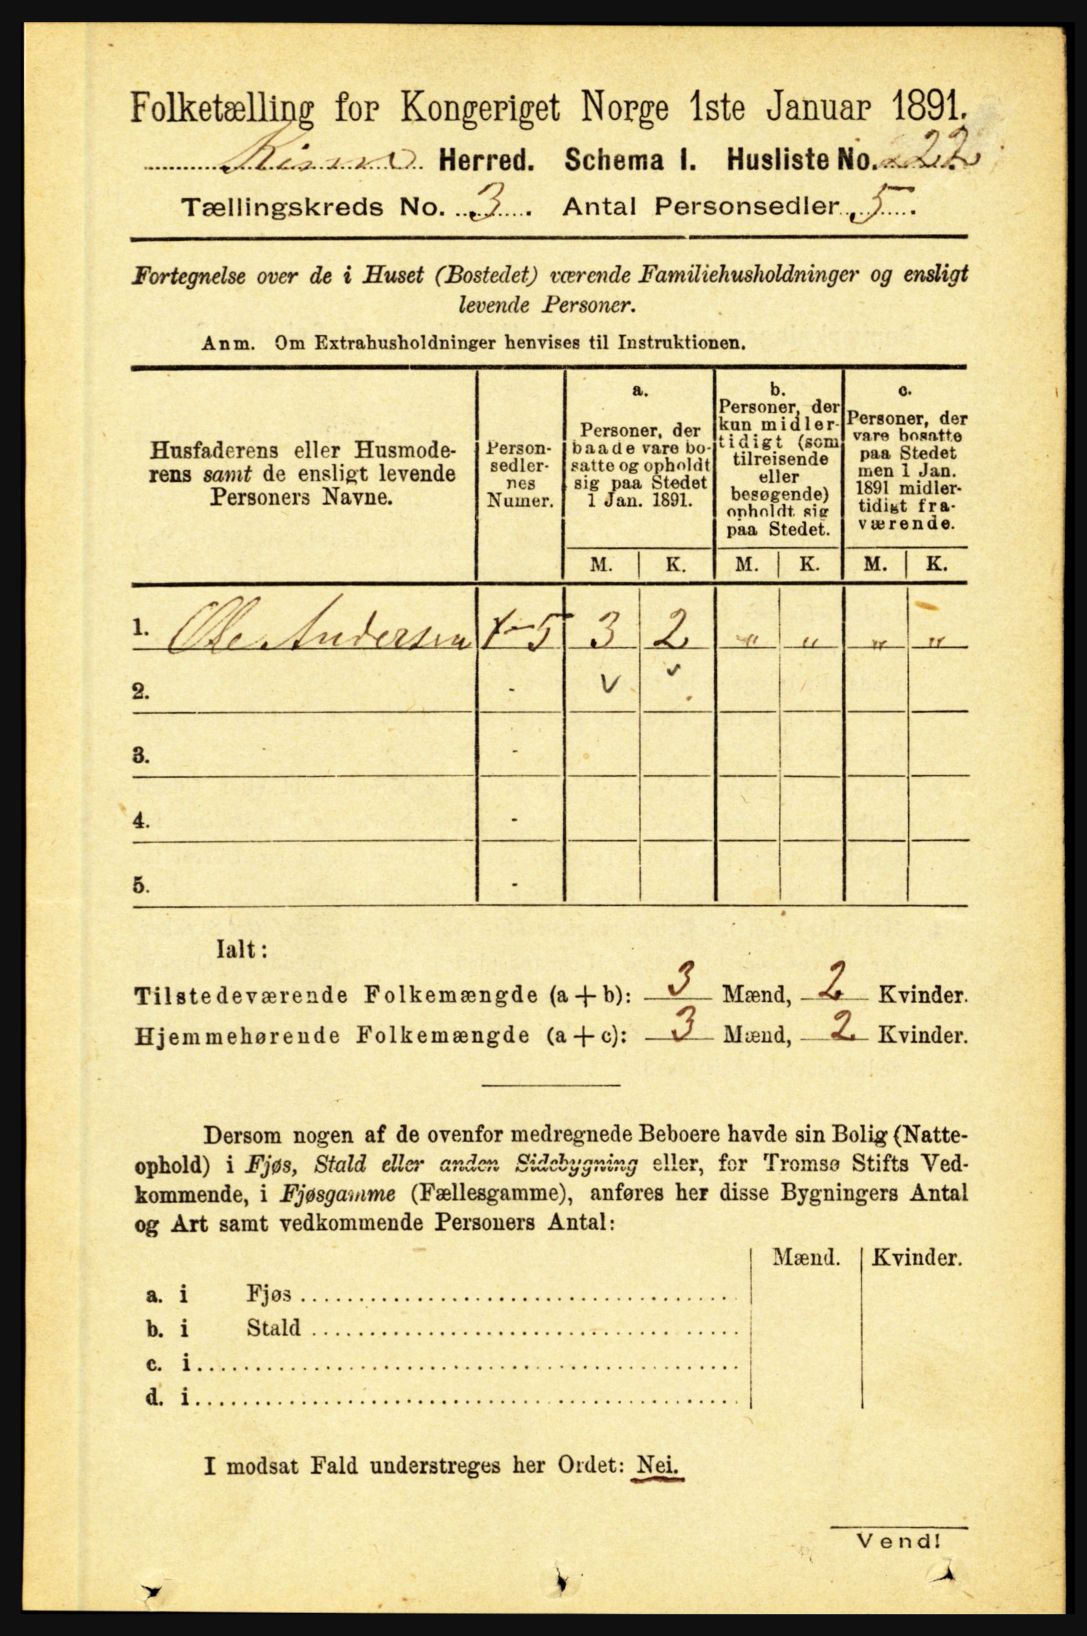 Folketælling for Kongeriget Norge 1ste Januar 1891.
Kinn Herred. Schema I. Husliste No. 22
Tællingskreds No. 3. Antal Personsedler 5.
Fortegnelse over de i Huset (Bostedet) værende Familiehusholdninger og ensligt
levende Personer.
Anm. Om Extrahusholdninger henvises til Instruktionen.
Husfaderens eller Husmode-
rens samt de ensligt levende
Personers Navne.
Person-
sedler-
nes
Numer.
a.
Personer, der
baade vare bo-
satte og opholdt
sig paa Stedet
1 Jan. 1891.
b.
Personer, der
kun midler-
tidigt (som
tilreisende
eller
besøgende)
opholdt sig
paa Stedet.
c.
Personer, der
vare bosatte
paa Stedet
men 1 Jan.
1891 midler-
tidigt fra-
værende.
M. K. M. K. M. K.
1. Ole Andersen 1-5 3 2 „ „ „ „
2. -
3. -
4. -
5. -
Ialt:
Tilstedeværende Folkemængde (a + b): 3 Mænd, 2 Kvinder.
Hjemmehørende Folkemængde (a + c): 3 Mænd, 2 Kvinder.
Dersom nogen af de ovenfor medregnede Beboere havde sin Bolig (Natte-
ophold) i Fjøs, Stald eller anden Sidebygning eller, for Tromsø Stifts Ved-
kommende, i Fjøsgamme (Fællesgamme), anføres her disse Bygningers Antal
og Art samt vedkommende Personers Antal:
Mænd. Kvinder.
a. i Fjøs
b. i Stald
c. i
d. i
I modsat Fald understreges her Ordet: Nei.
Vend!